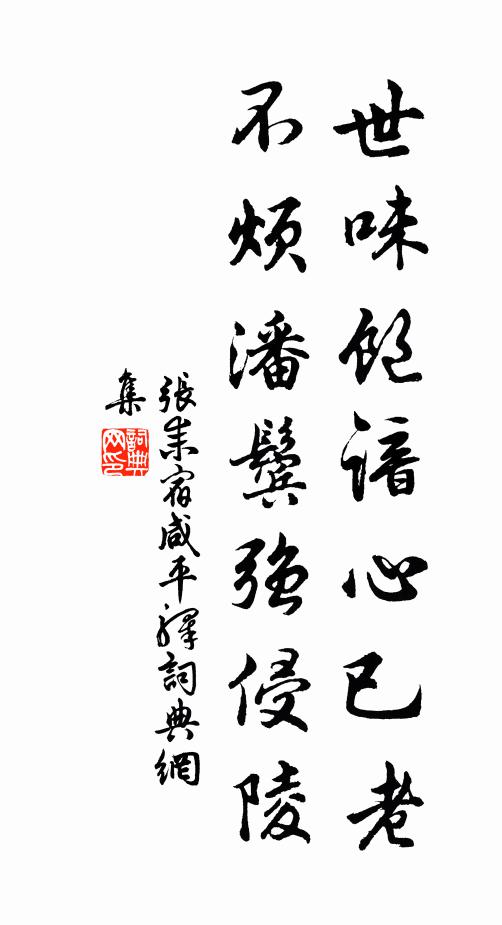 世味飽諳心已老
不煩潘鬢強侵陵
張耒宿咸平驛詞典網
集
詞典
网印